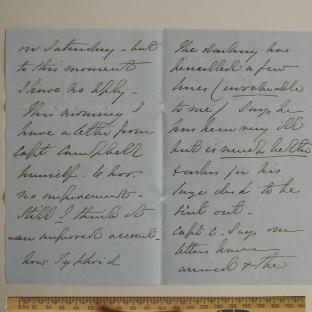 on Saturday - but
to this moment
I have no reply -
This morning I
have a letter from
Capt Campbell
himself - & how
no improvement -
Still I think it
an improved account -
how Typhoid
The darling has
pencilled a few
lines (invaluable
to me) Says he
has been very ill
but is much better
& asks for his
large bed to be
sent out -
Capt C. Says our
letters have
arrived & the